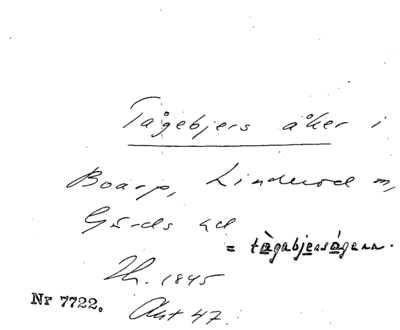 Tågebjers åker i
Boarp, Linderöd sn,
Gärds hd
= tågabjersågann.
Lh. 1845
Nr 7722. Akt 47.